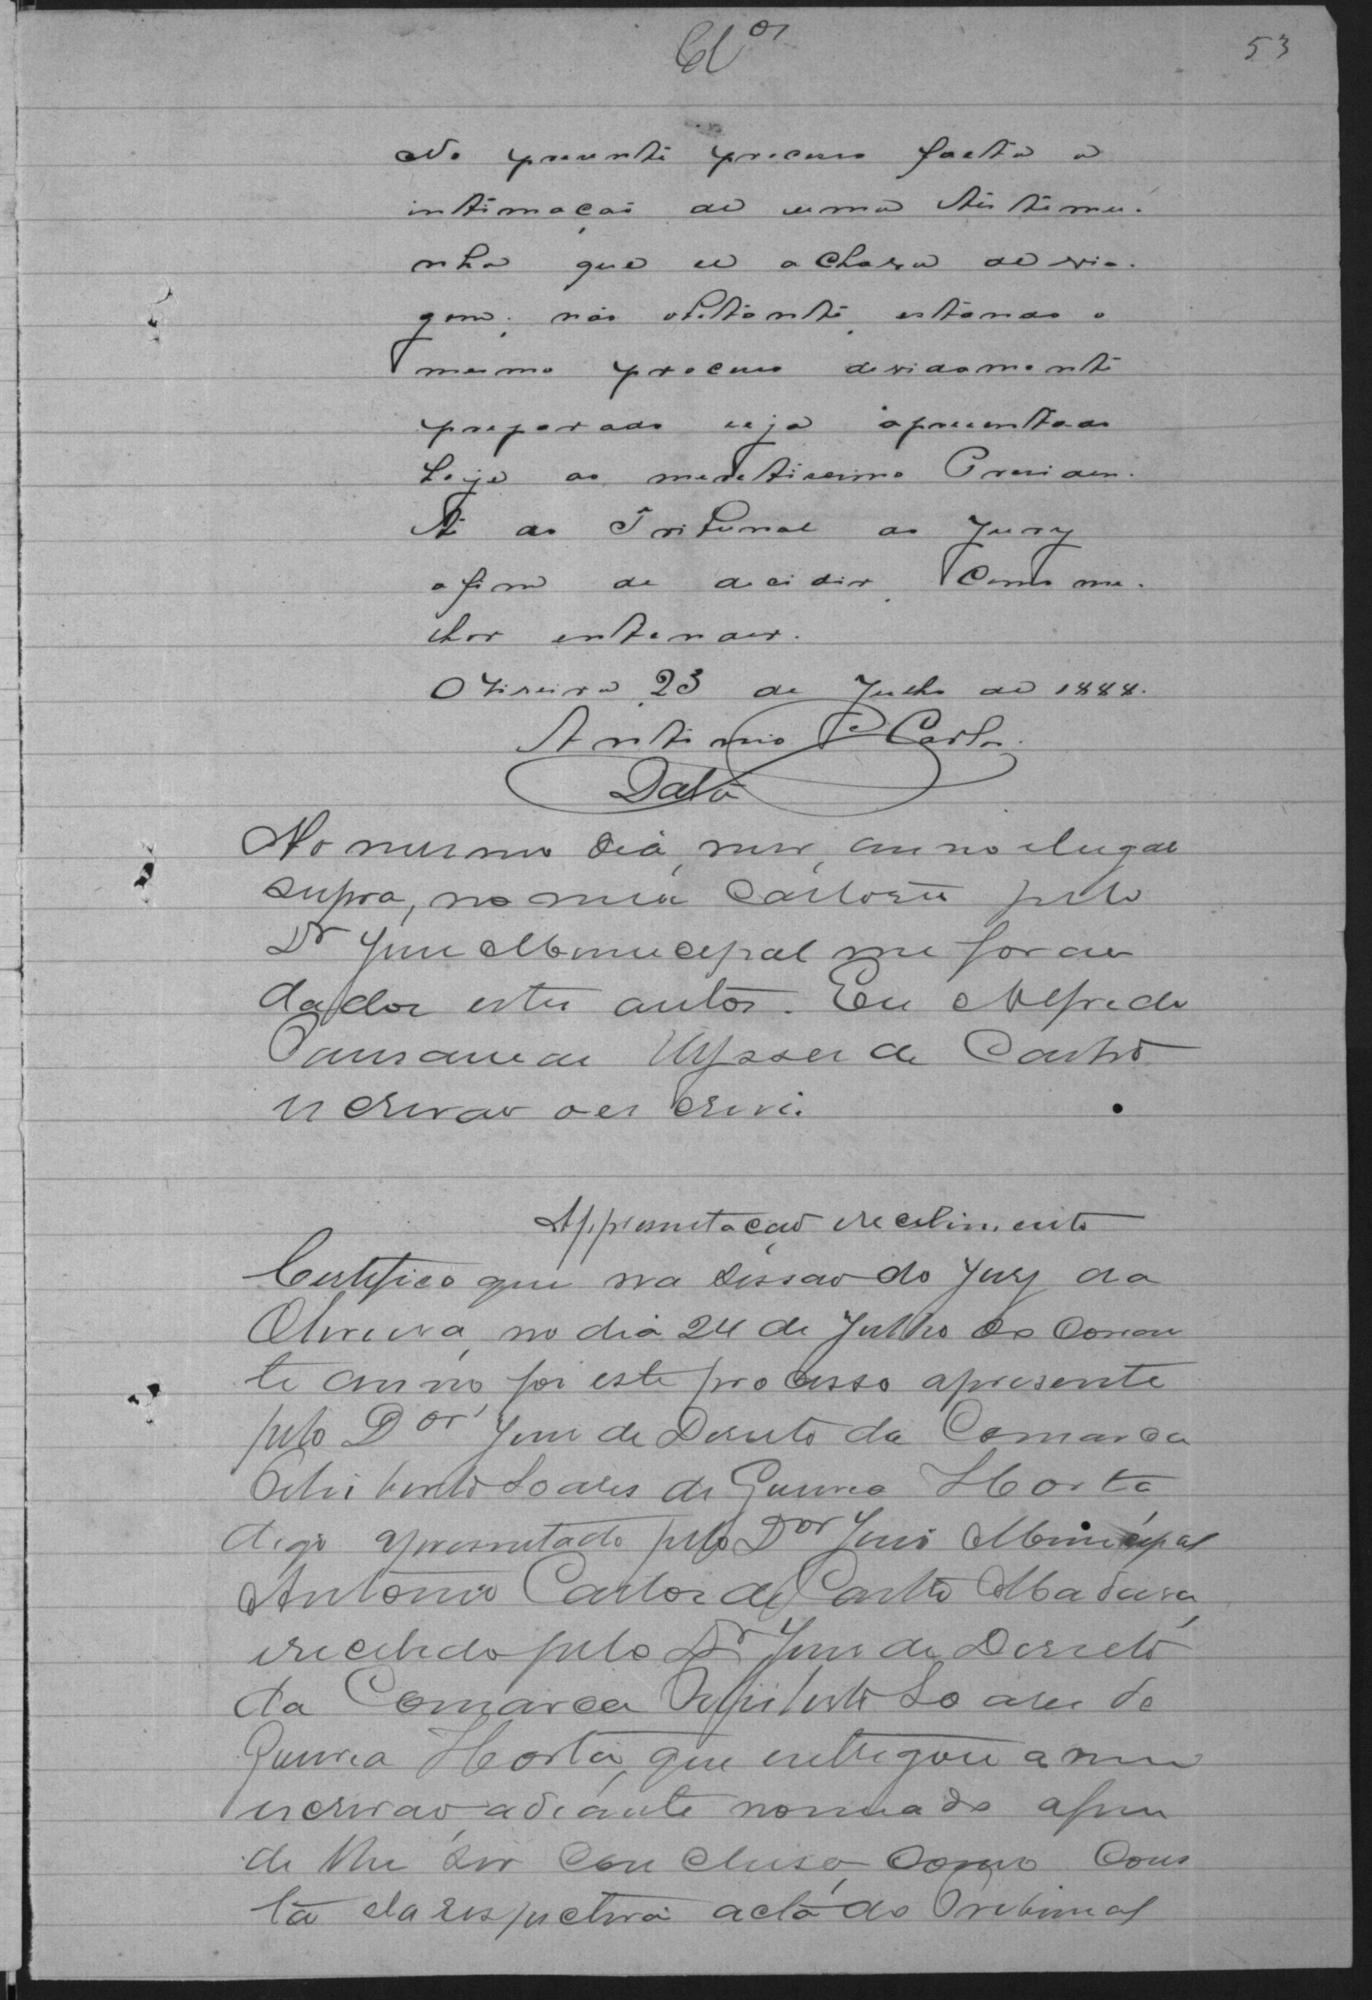 Cl.os
53
No presente processo falta a
intimação de uma testemu-
nha que se achava de via-
gem; não obstante, estando o
mesmo processo devidamente
preparado seja apresentado
hoje ao meretissimo Presiden-
te do Tribunal do Jury
afim de decidir como me-
lhor entender.
Oliveira 23 de Julho de 1888.
Antonio Carlos
Data
No mesmo dia, mez, anno e lugar
supra, no meu Cartorio pelo
Dr Juiz Municipal me foram
dados estes autos. Eu Alfredo
Pausanias Ulysses de Castro
escrivão o escrevi.
Appresentação e recebimento
Certifico que na sessão do Jury da
Oliveira, no dia 24 de Julho do corren
te anno, foi este processo apresente
pelo Dor Juiz de Direito da Comarca
Soares de Gouvea Horta
digo apresentado pelo Dor Juis Municipal
Antonio Carlos de Castro Madeira,
e recebido pelo Dr Juiz de Direito
da Comarca Soares de
Gouvea Horta, que entregou a mim
escrivão adiante nomeado afim
de lhe ser concluso, como cons
ta da respectiva acta do Tribunal